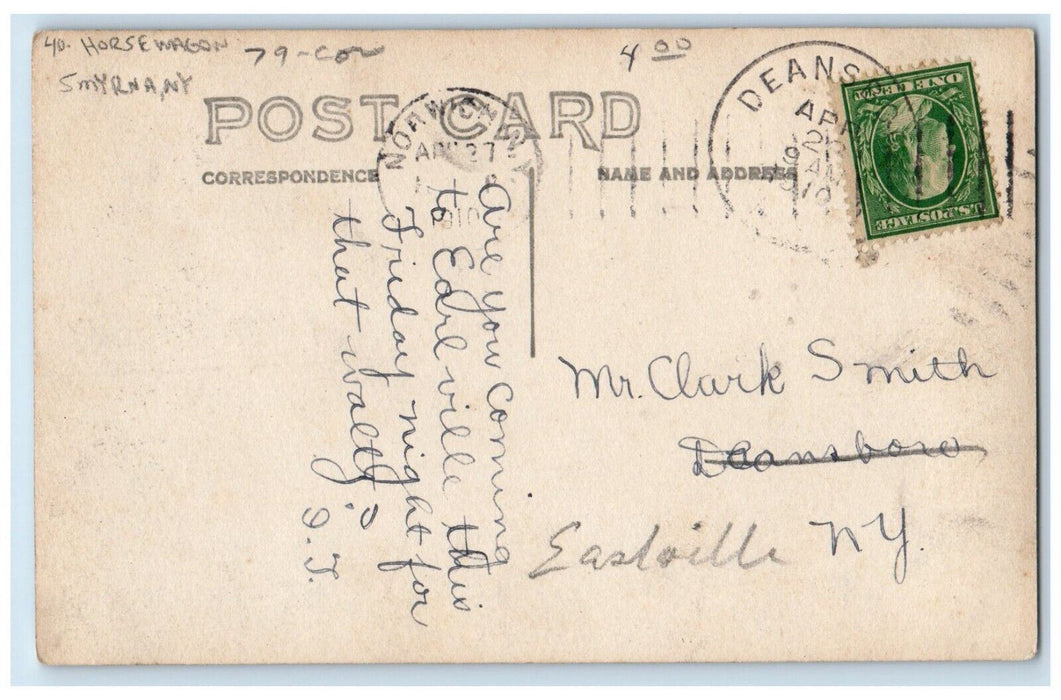 40. HORSE WAGON
79-COV
4 00
SMYRNA, NY
POST CARD
CORRESPONDENCE
NAME AND ADDRESS
NORWICH, N.Y.
APR 27
DEANS
APR
AM
1910
ONE CENT
U.S. POSTAGE
are you coming
to Earlville this
Friday night for
that waltz?
Mr. Clark Smith
Deansboro
Eastville NY.